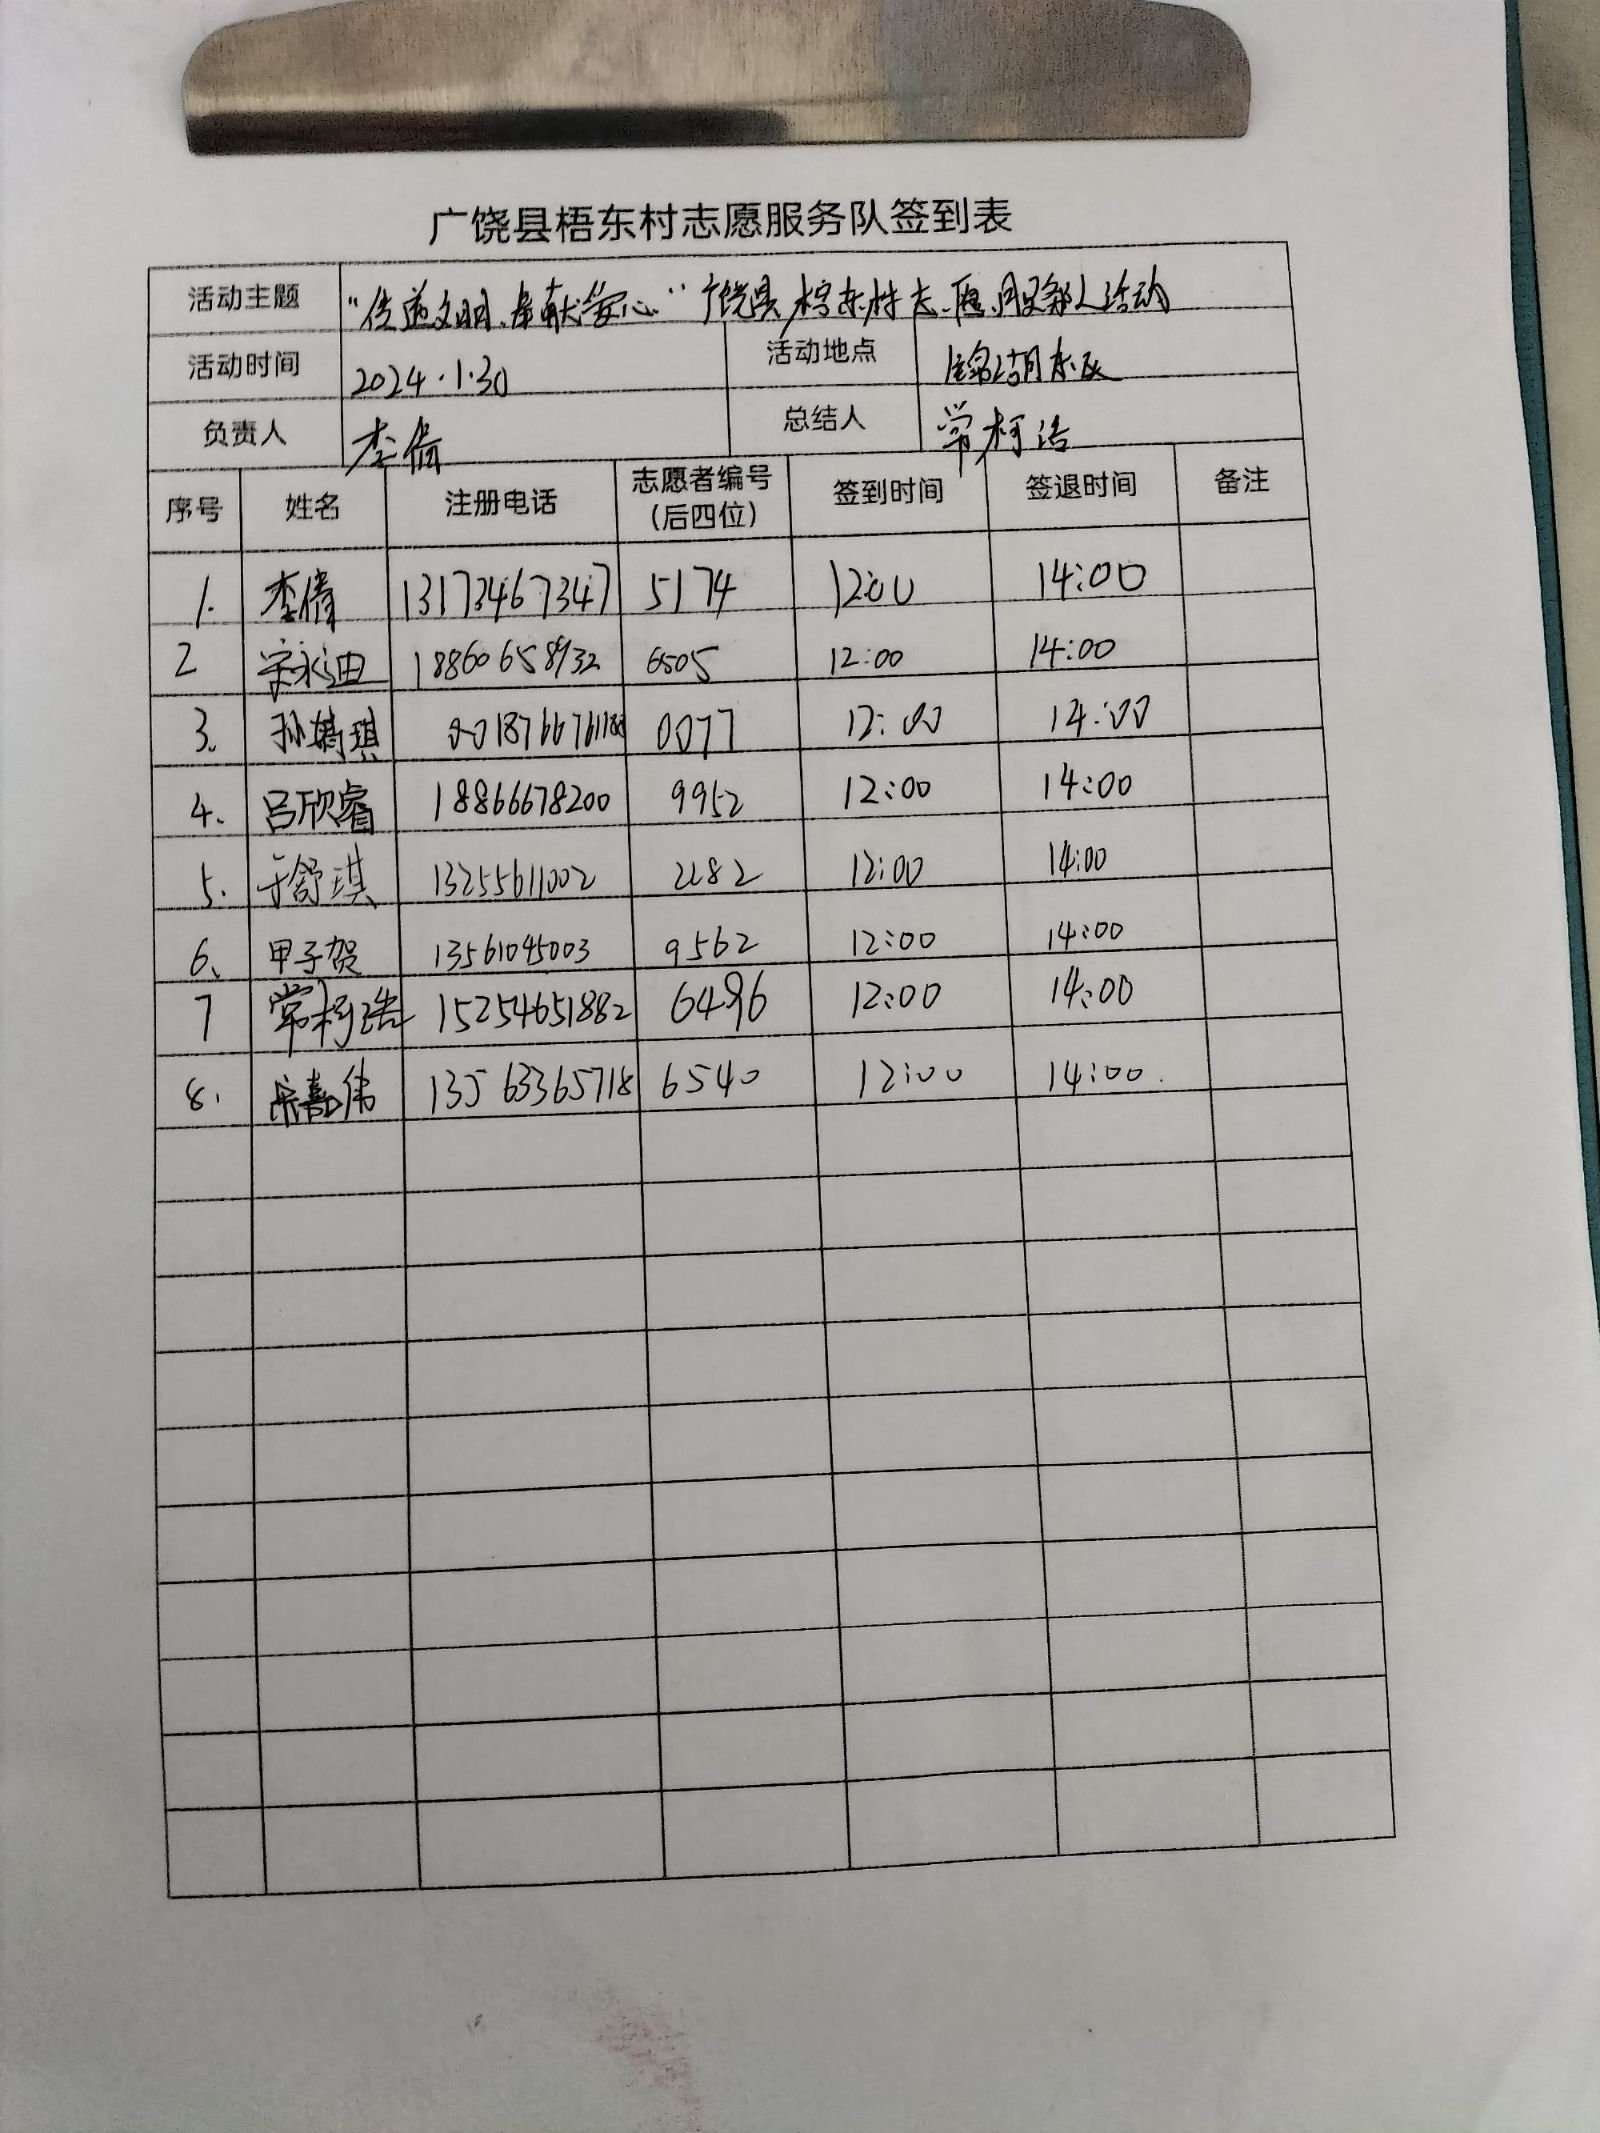 广饶县梧东村志愿服务队签到表
活动主题 “传递文明、奉献爱心”广饶县梧东村志愿服务队活动
活动时间 2024.1.30 活动地点 锦湖东区
负责人 李倩 总结人 常柯浩
序号 姓名 注册电话 志愿者编号（后四位） 签到时间 签退时间 备注
1. 李倩 13173467347 5174 12:00 14:00
2 宋永迪 18860658932 6505 12:00 14:00
3. 孙嫡琪 0077 12:00 14:00
4. 吕欣睿 18866678200 9952 12:00 14:00
5. 于舒琪 13255611002 2282 12:00 14:00
6、 甲子贺 13561045003 9562 12:00 14:00
7 常柯浩 15254651882 6496 12:00 14:00
8. 宋嘉伟 13563365718 6540 12:00 14:00.